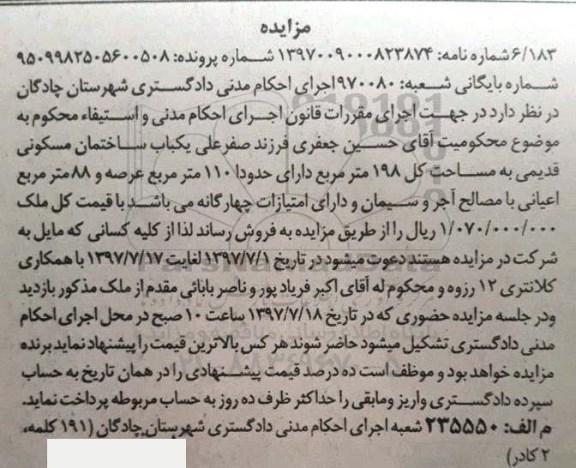 مزایده
۶/۱۸۳ شماره نامه: ۱۳۹۷۰۰۹۰۰۰۸۲۳۸۷۴ شماره پرونده: ۹۵۰۹۹۸۲۵۰۵۶۰۰۵۰۸
شماره بایگانی شعبه: ۹۷۰۰۸۰ اجرای احکام مدنی دادگستری شهرستان چادگان
در نظر دارد در جهت اجرای مقررات قانون اجرای احکام مدنی و استیفاء محکوم به
موضوع محکومیت آقای حسین جعفری فرزند صفرعلی یکباب ساختمان مسکونی
قدیمی به مساحت کل ۱۹۸ متر مربع دارای حدودا ۱۱۰ متر مربع عرصه و ۸۸ متر مربع
اعیانی با مصالح آجر و سیمان و دارای امتیازات چهارگانه می باشد با قیمت کل ملک
۱/۰۷۰/۰۰۰/۰۰۰ ریال را از طریق مزایده به فروش رساند لذا از کلیه کسانی که مایل به
شرکت در مزایده هستند دعوت میشود در تاریخ ۱۳۹۷/۷/۱ لغایت ۱۳۹۷/۷/۱۷ با همکاری
کلانتری ۱۲ رزوه و محکوم له آقای اکبر فریاد پور و ناصر بابائی مقدم از ملک مذکور بازدید
ودر جلسه مزایده حضوری که در تاریخ ۱۳۹۷/۷/۱۸ ساعت ۱۰ صبح در محل اجرای احکام
مدنی دادگستری تشکیل میشود حاضر شوند هر کس بالاترین قیمت را پیشنهاد نماید برنده
مزایده خواهد بود و موظف است ده درصد قیمت پیشنهادی را در همان تاریخ به حساب
سپرده دادگستری واریز ومابقی را حداکثر ظرف ده روز به حساب مربوطه پرداخت نماید.
م الف: ۲۳۵۵۵۰ شعبه اجرای احکام مدنی دادگستری شهرستان چادگان (۱۹۱ کلمه،
۲ کادر)